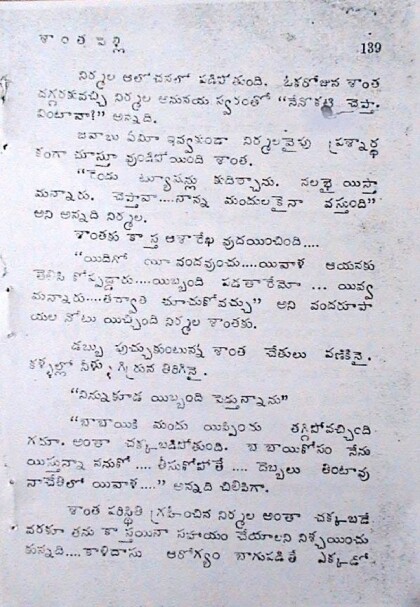 శాంత పెళ్లి 139
నిర్మల ఆలోచనలో పడిపోతుంది. ఓకరోజున శాంత
దగ్గరకువచ్చి నిర్మల అనునయ స్వరంతో “నేనొకటి చెప్తా.
వింటావా?” అన్నది.
జవాబు ఏమీ ఇవ్వకుండా నిర్మలవైపు ప్రశ్నార్థ
కంగా చూస్తూ వుండిపోయింది శాంత.
“రెండు ట్యూషన్లు కుదిర్చాను. నలభై యిస్తా
మన్నారు. చెప్తావా....నాన్న మందులకైనా వస్తుంది”
అని అన్నది నిర్మల.
శాంతకు కాస్త ఆశారేఖ వుదయించింది....
“యిదిగో యీ వందవుంచు....యివాళ ఆయనకు
తెలిసి కోప్పడ్డారు....యిబ్బంది పడతారేమో ... యివ్వ
మన్నారు....తర్వాత చూచుకోవచ్చు” అని వందరూపా
యల నోటు యిచ్చింది నిర్మల శాంతకు.
డబ్బు పుచ్చుకుంటున్న శాంత చేతులు వణికినై.
కళ్ళల్లో నీళ్ళు గిర్రున తిరిగినై.
“నిన్నుకూడ యిబ్బంది పెడ్తున్నాను”
“బాబాయికి మందు యిప్పించు తగ్గిపోవచ్చింది
గదూ. అంతా చక్కబడిపోతుంది. బాబాయికోసం నేను
యిస్తున్నా ననుకో .... తీసుకోపోతే .... దెబ్బలు తింటావు
నాచేతిలో యివాళ....” అన్నది చిలిపిగా.
శాంత పరిస్థితి గ్రహించిన నిర్మల అంతా చక్కబడే
వరకూ తను కాస్తయినా సహాయం చేయాలని నిశ్చయించు
కున్నది....కాళిదాసు ఆరోగ్యం బాగుపడితే ఎక్కడో